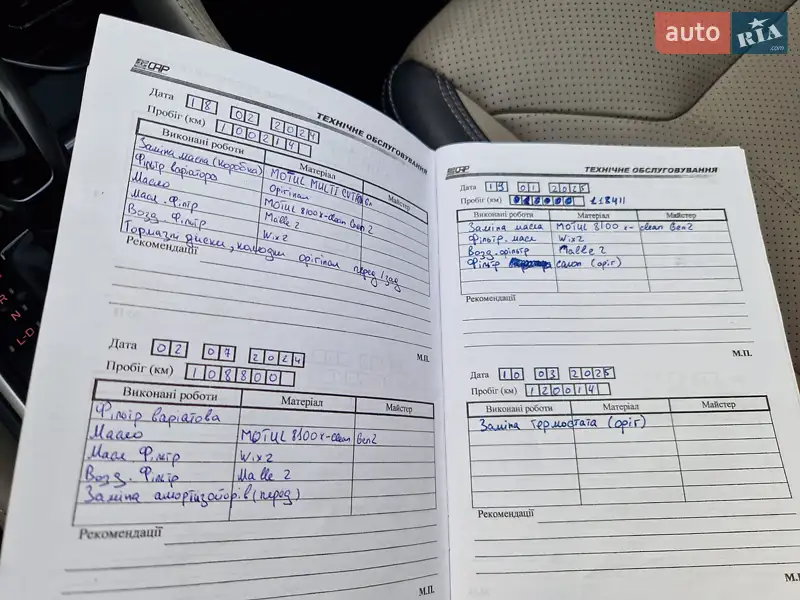 auto RIA
.com
CAP
ТЕХНІЧНЕ ОБСЛУГОВУВАННЯ
Дата 18 02 2024
Пробіг (км) 100214
Виконані роботи Матеріал Майстер
Заміна масла (коробка) MOTUL MULTI CVTF
Фільтр варіатора Оригінал
Масло MOTUL 8100 x-clean Gen 2
Масл. Фільтр Malle 2
Возд. Фільтр Wix 2
Тормазні диски, колодки орігінал перед/зад
Рекомендації
М.П.
Дата 02 07 2024
Пробіг (км) 108800
Виконані роботи Матеріал Майстер
Фільтр варіатова
Масло MOTUL 8100 x-clean Gen 2
Масл Фільтр Wix 2
Возд. Фільтр Malle 2
Заміна амортизаторів (перед)
Рекомендації
М.П.
CAP
ТЕХНІЧНЕ ОБСЛУГОВУВАННЯ
Дата 13 01 2025
Пробіг (км) 118411
Виконані роботи Матеріал Майстер
Заміна масла MOTUL 8100 x-clean Gen 2
Фільтр. масл Wix 2
Возд. фільтр Malle 2
Фільтр салон (оріг)
Рекомендації
М.П.
Дата 10 03 2025
Пробіг (км) 120014
Виконані роботи Матеріал Майстер
Заміна термостата (оріг)
Рекомендації
М.
R
N
L-D